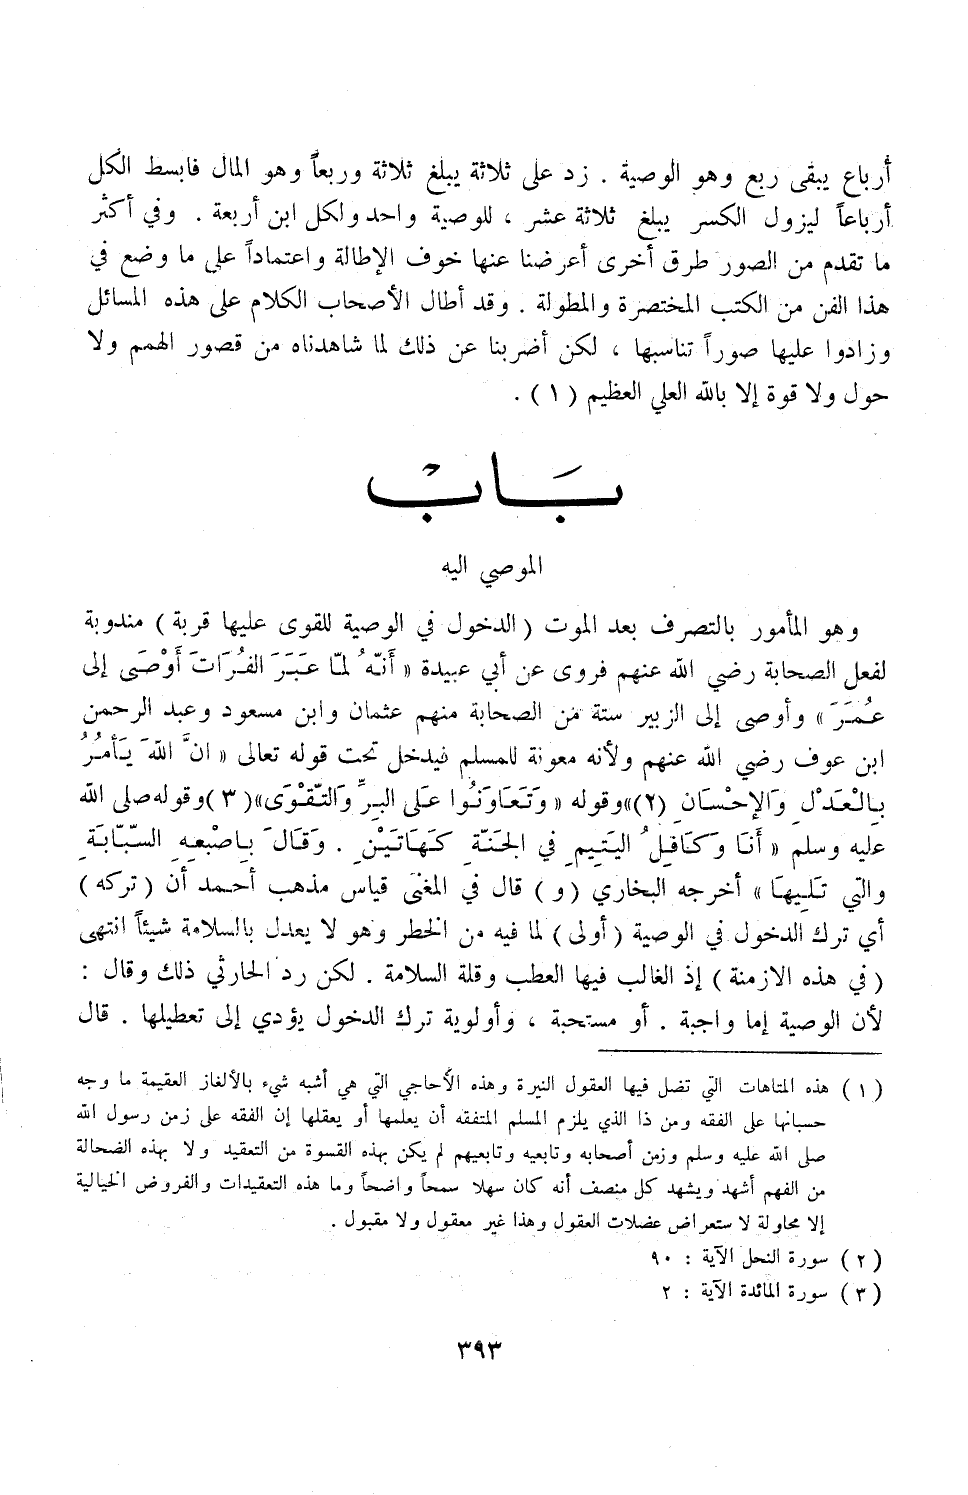 أرباع يبقى ربع وهو الوصية . زد على ثلاثة يبلغ ثلاثة وربعاً وهو المال فابسط الكل
أرباعاً ليزول الكسر يبلغ ثلاثة عشر ، للوصية واحد ولكل ابن أربعة . وفي أكثر
ما تقدم من الصور طرق أخرى أعرضنا عنها خوف الإطالة واعتماداً على ما وضع في
هذا الفن من الكتب المختصرة والمطولة . وقد أطال الأصحاب الكلام على هذه المسائل
وزادوا عليها صوراً تناسبها ، لكن أضربنا عن ذلك لما شاهدناه من قصور الهمم ولا
حول ولا قوة إلا بالله العلي العظيم ( ١ ) .
بَابْ
الموصي اليه
وهو المأمور بالتصرف بعد الموت ( الدخول في الوصية للقوى عليها قربة ) مندوبة
لفعل الصحابة رضي الله عنهم فروى عن أبي عبيدة « أَنَّهُ لمّا عَبَرَ الفُرَاتَ أَوْصَى إلى
عُمَرَ » وأوصى إلى الزبير ستة من الصحابة منهم عثمان وابن مسعود وعبد الرحمن
ابن عوف رضي الله عنهم ولأنه معونة للمسلم فيدخل تحت قوله تعالى « انَّ اللهَ يَأمُرُ
بِالْعَدْلِ وَالإحْسَانِ (٢)»وقوله « وَتَعَاوَنُوا عَلى البِرِّ وَالتَّقوْىَ»( ٣ )وقوله صلى الله
عليه وسلم « أَنَا وَكَافِلُ اليَتِيمِ في الجَنَّةِ كَهَاتَيْنِ . وَقَالَ بِاصْبعِهِ السَّبَّابَةِ
والتي تَلِيهَا » أخرجه البخاري ( و ) قال في المغنى قياس مذهب أحمد أن ( تركه )
أي ترك الدخول في الوصية ( أولى ) لما فيه من الخطر وهو لا يعدل بالسلامة شيئاً انتهى
( في هذه الازمنة ) إذ الغالب فيها العطب وقلة السلامة . لكن رد الحارثي ذلك وقال :
لأن الوصية إما واجبة . أو مستحبة ، وأولوية ترك الدخول يؤدي إلى تعطيلها . قال
( ١ ) هذه المتاهات التي تضل فيها العقول النيرة وهذه الأحاجي التي هي أشبه شيء بالألغاز العقيمة ما وجه
حسبانها على الفقه ومن ذا الذي يلزم المسلم المتفقه أن يعلمها أو يعقلها إن الفقه على زمن رسول الله
صلى الله عليه وسلم وزمن أصحابه وتابعيه وتابعيهم لم يكن بهذه القسوة من التعقيد ولا بهذه الضحالة
من الفهم أشهد ويشهد كل منصف أنه كان سهلا سمحاً واضحاً وما هذه التعقيدات والفروض الخيالية
إلا محاولة لاستعراض عضلات العقول وهذا غير معقول ولا مقبول .
( ٢ ) سورة النحل الآية : ٩٠
( ٣ ) سورة المائدة الآية : ٢
٣٩٣